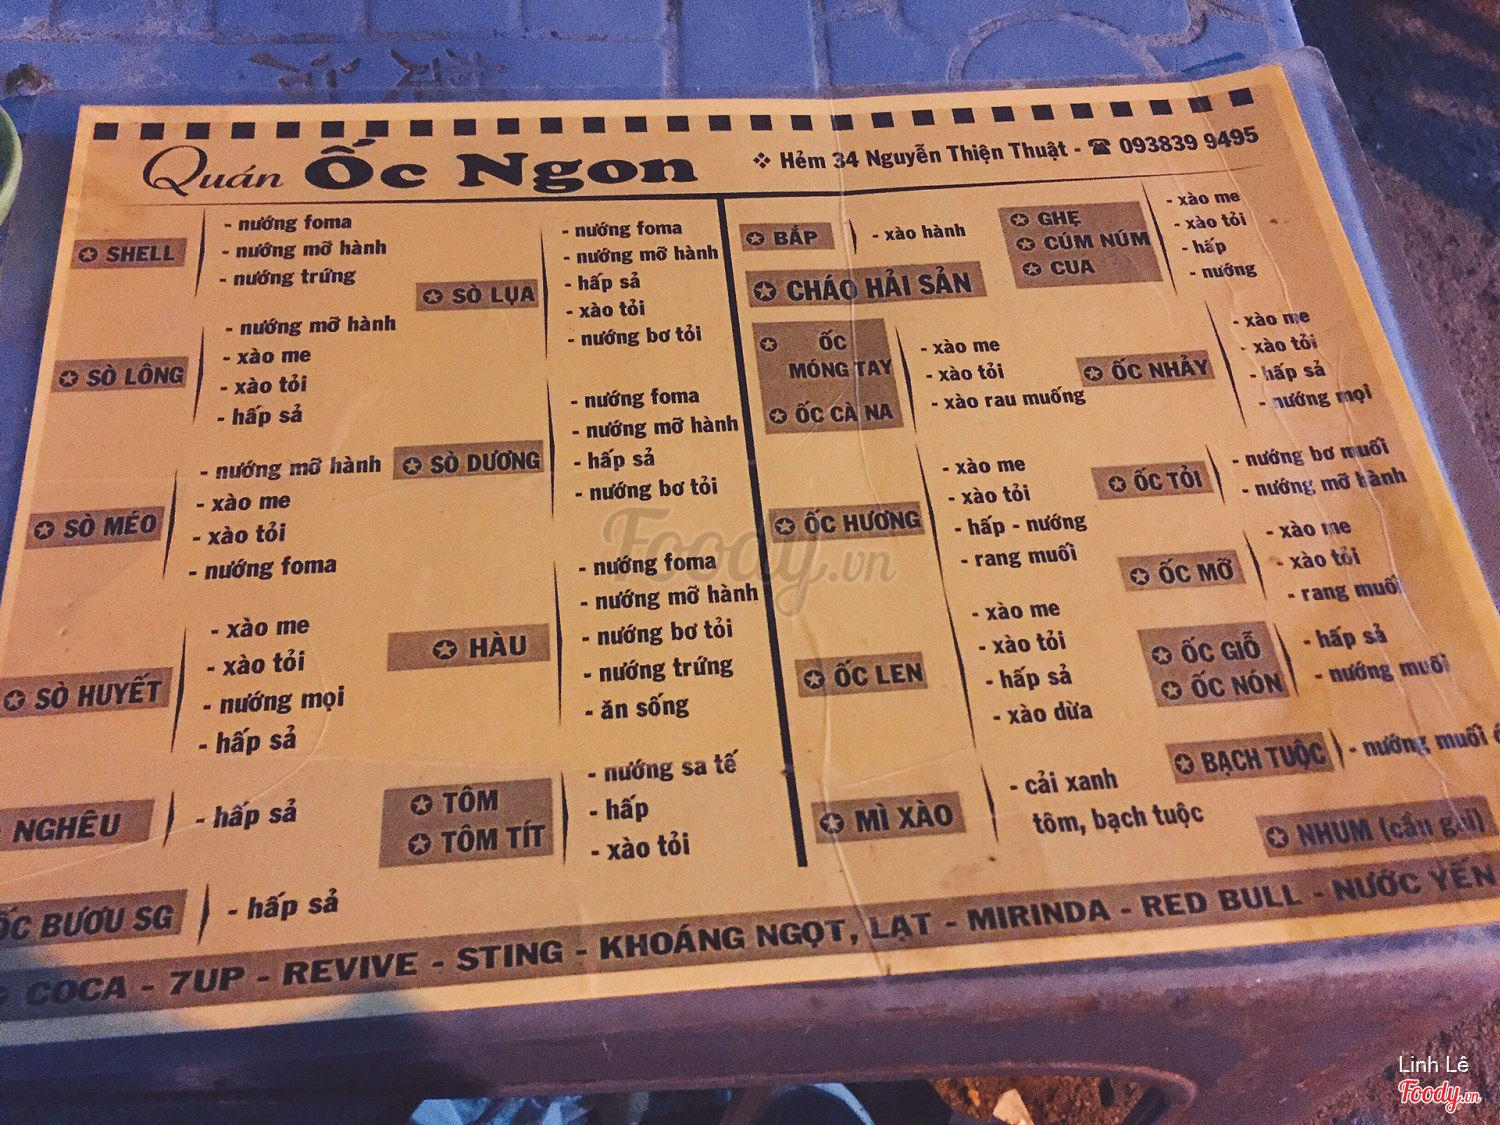 Quán Ốc Ngon
❖ Hẻm 34 Nguyễn Thiện Thuật - ☎ 093839 9495
✪ SHELL
- nướng foma
- nướng mỡ hành
- nướng trứng
✪ SÒ LÔNG
- nướng mỡ hành
- xào me
- xào tỏi
- hấp sả
✪ SÒ MÉO
- nướng mỡ hành
- xào me
- xào tỏi
- nướng foma
✪ SÒ HUYẾT
- xào me
- xào tỏi
- nướng mọi
- hấp sả
NGHÊU
- hấp sả
ỐC BƯƠU SG
- hấp sả
✪ SÒ LỤA
- nướng foma
- nướng mỡ hành
- hấp sả
- xào tỏi
- nướng bơ tỏi
✪ SÒ DƯƠNG
- nướng foma
- nướng mỡ hành
- hấp sả
- nướng bơ tỏi
✪ HÀU
- nướng foma
- nướng mỡ hành
- nướng bơ tỏi
- nướng trứng
- ăn sống
✪ TÔM
✪ TÔM TÍT
- nướng sa tế
- hấp
- xào tỏi
✪ BẮP
- xào hành
✪ CHÁO HẢI SẢN
✪ ỐC
MÓNG TAY
✪ ỐC CÀ NA
- xào me
- xào tỏi
- xào rau muống
✪ ỐC HƯƠNG
- xào me
- xào tỏi
- hấp - nướng
- rang muối
✪ ỐC LEN
- xào me
- xào tỏi
- hấp sả
- xào dừa
✪ MÌ XÀO
- cải xanh
tôm, bạch tuộc
✪ GHẸ
✪ CÚM NÚM
✪ CUA
- xào me
- xào tỏi
- hấp
- nướng
✪ ỐC NHẢY
- xào me
- xào tỏi
- hấp sả
- nướng mọi
✪ ỐC TỎI
- nướng bơ muối
- nướng mỡ hành
✪ ỐC MỠ
- xào me
- xào tỏi
- rang muối
✪ ỐC GIỖ
✪ ỐC NÓN
- hấp sả
- nướng muối
✪ BẠCH TUỘC
- nướng muối
✪ NHUM (cầu gai)
COCA - 7UP - REVIVE - STING - KHOÁNG NGỌT, LẠT - MIRINDA - RED BULL - NƯỚC YẾN
Foody.vn
Linh Lê
Foody.vn